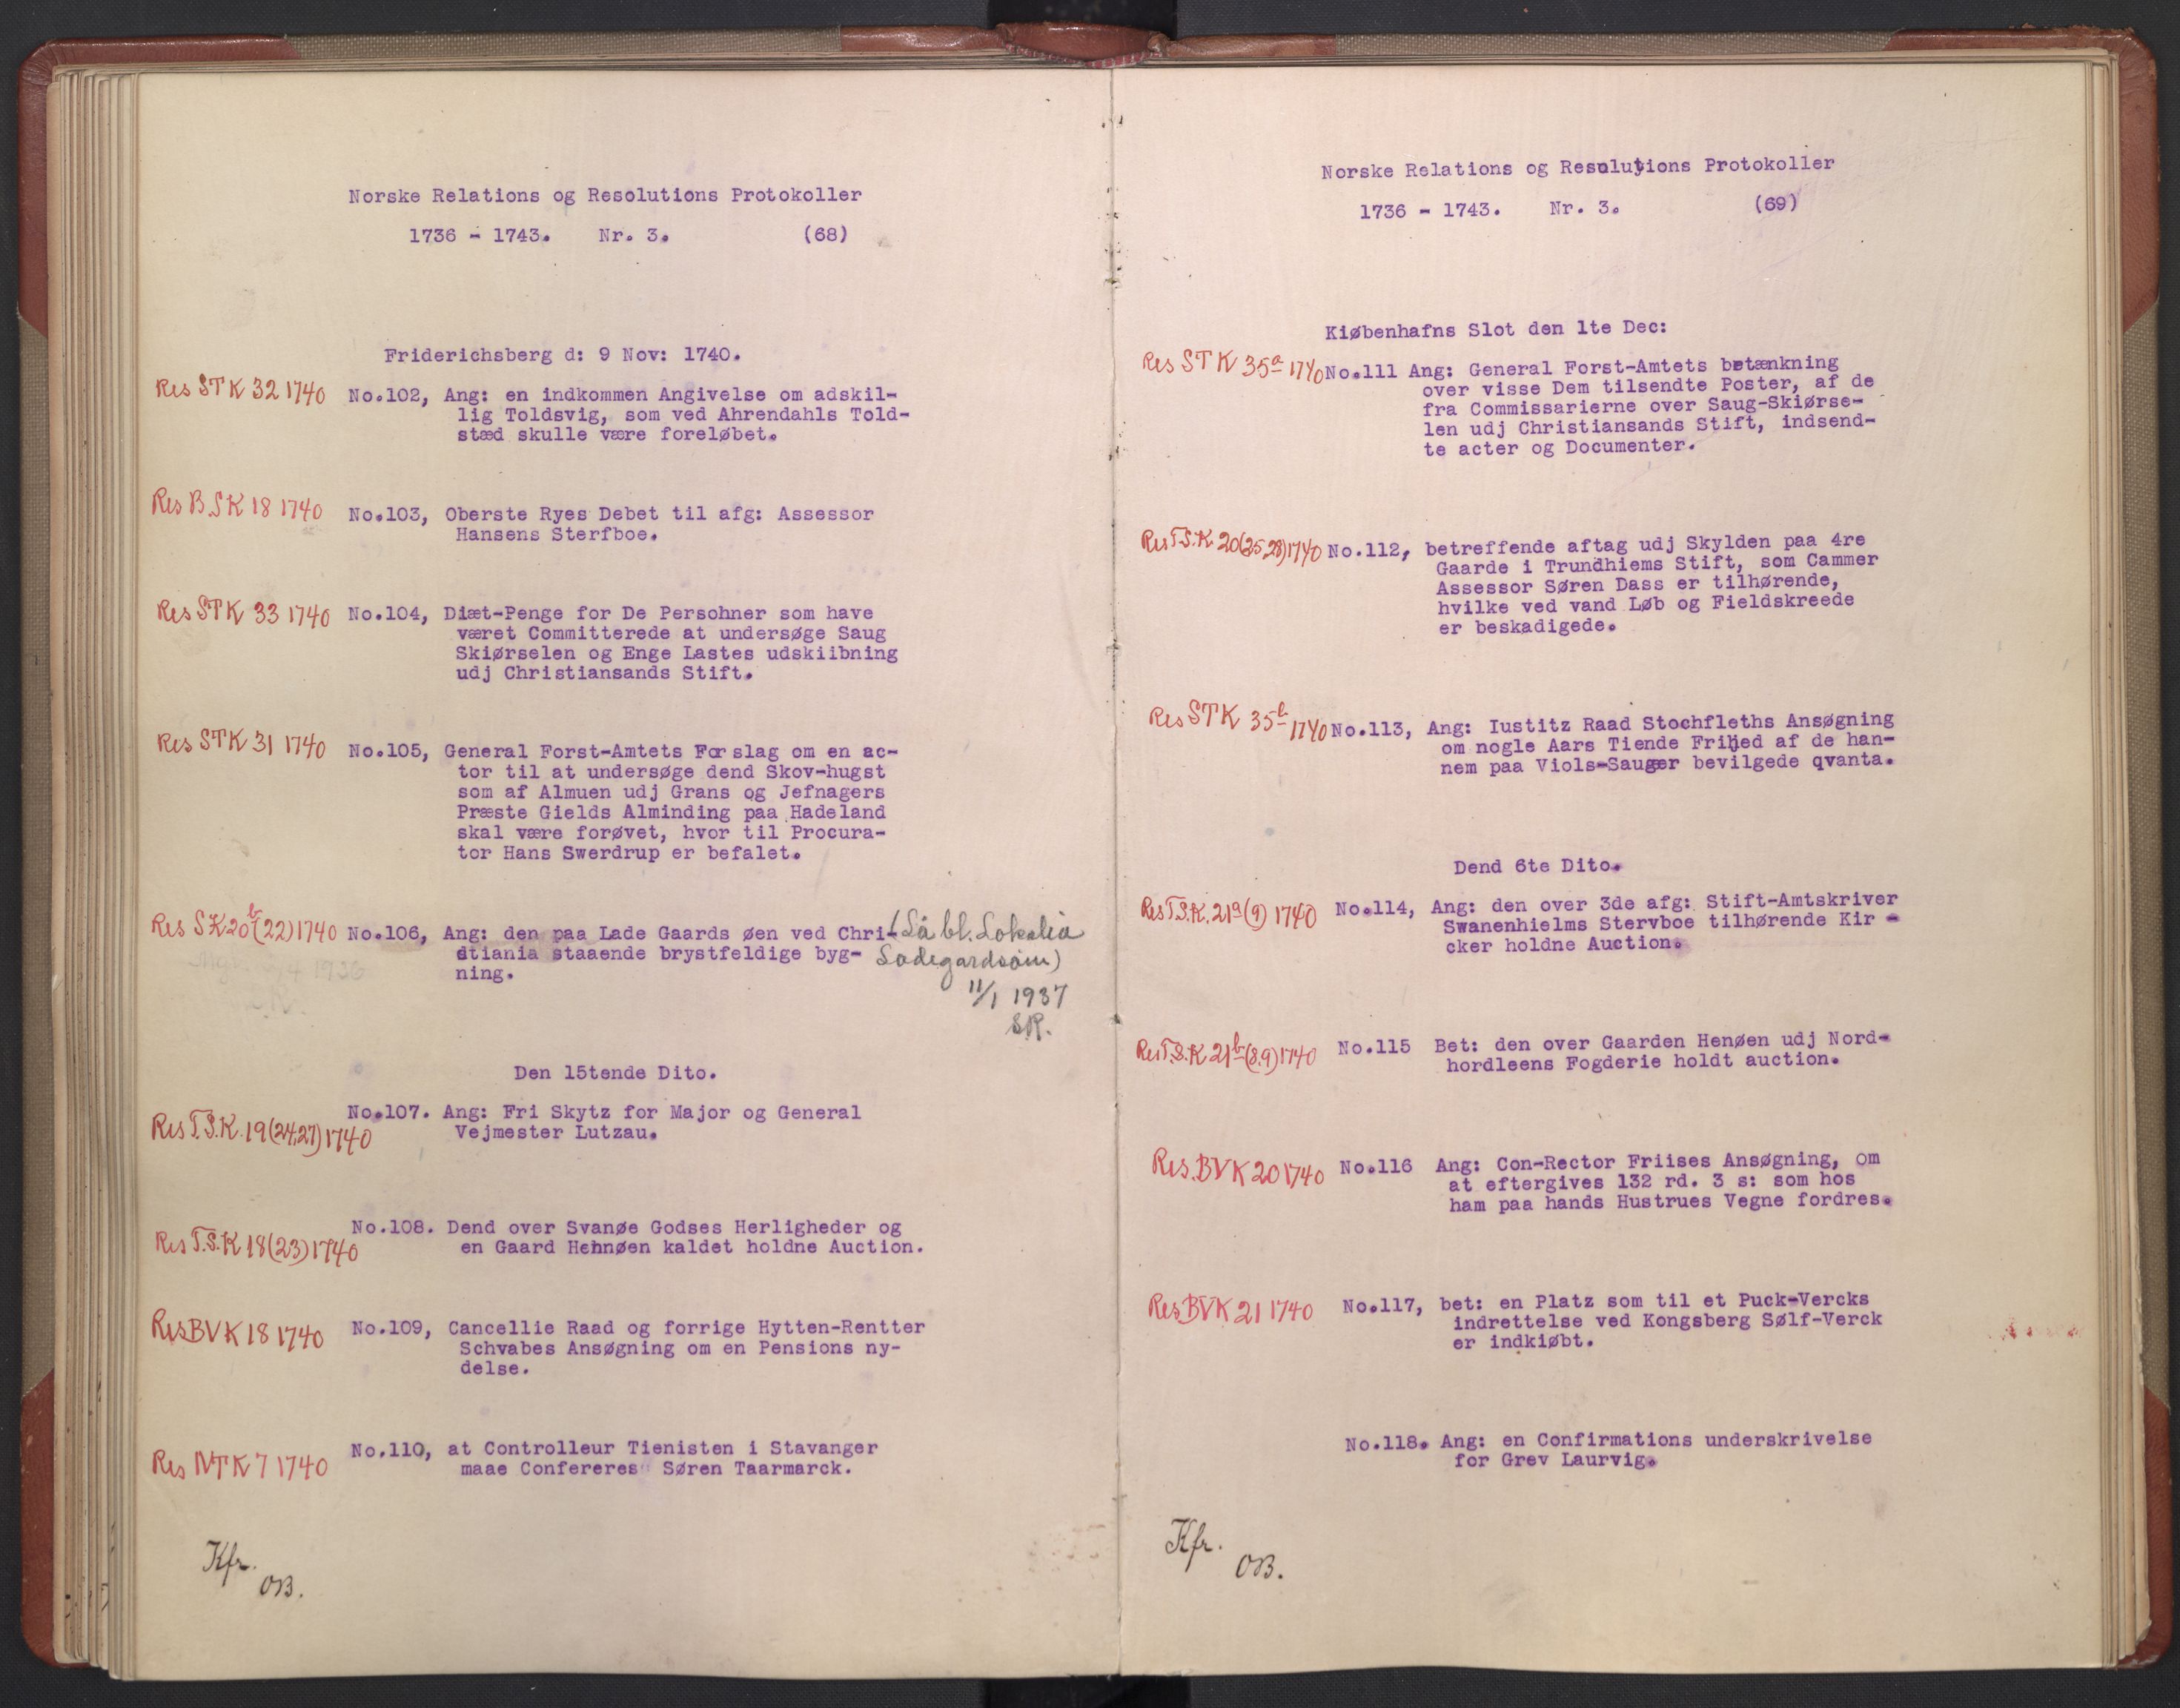 Norske Relations og Resolutions Protokoller
1736 - 1743. Nr. 3. (68)
Friderichsberg d: 9 Nov: 1740.
Res STK 32 1740 No.102, Ang: en indkommen Angivelse om adskil-
lig Toldsvig, som ved Ahrendahls Told-
stæd skulle være foreløbet.
Res B.S.K 18 1740 No.103, Oberste Ryes Debet til afg: Assessor
Hansens Sterfboe.
Res STK 33 1740 No.104, Diæt-Penge for De Persohner som have
været Committerede at undersøge Saug
Skiørselen og Enge Lastes udskiibning
udj Christiansands Stift.
Res STK 31 1740 No.105, General Forst-Amtets Forslag om en ac-
tor til at undersøge dend Skov-hugst
som af Almuen udj Grans og Jefnagers
Præste Gields Alminding paa Hadeland
skal være forøvet, hvor til Procura-
tor Hans Swerdrup er befalet.
Res SK 20b (22) 1740 No.106, Ang: den paa Lade Gaards øen ved Chri- (Lå bl. Lokalia
stiania staaende brystfeldige byg- Ladegardsøin)
ning. 11/1 1937
SR.
Den 15tende Dito.
No.107. Ang: Fri Skytz for Major og General
Res T.S.K. 19 (24,27) 1740 Vejmester Lutzau.
No.108. Dend over Svanøe Godses Herligheder og
Res T.S.K 18 (23) 1740 en Gaard Hennøen kaldet holdne Auction.
Res BVK 18 1740 No.109, Cancellie Raad og forrige Hytten-Rentter
Schvabes Ansøgning om en Pensions ny-
delse.
No.110, at Controlleur Tienisten i Stavanger
Res NTK 7 1740 maae Confereres Søren Taarmarck.
Kfr.
OB.
Norske Relations og Resolutions Protokoller
1736 - 1743. Nr. 3. (69)
Kiøbenhafns Slot den 1te Dec:
Res STK 35a 1740 No.111 Ang: General Forst-Amtets betænkning
over visse Dem tilsendte Poster, af de
fra Commissarierne over Saug-Skiørse-
len udj Christiansands Stift, indsend-
te acter og Documenter.
Res T.S.K. 20 (25,28) 1740 No.112, betreffende aftag udj Skylden paa 4re
Gaarde i Trundhiems Stift, som Cammer
Assessor Søren Dass er tilhørende,
hvilke ved vand Løb og Fieldskreede
er beskadigede.
Res STK 35b 1740 No.113, Ang: Iustitz Raad Stochfleths Ansøgning
om nogle Aars Tiende Frihed af de han-
nem paa Viols-Sauger bevilgede qvanta.
Dend 6te Dito.
Res T.S.K. 21a (9) 1740 No.114, Ang: den over 3de afg: Stift-Amtskriver
Swanenhielms Stervboe tilhørende Kir -
cker holdne Auction.
Res T.S.K 21b (8,9) 1740 No.115 Bet: den over Gaarden Henøen udj Nord-
hordleens Fogderie holdt auction.
Res. BVK 20 1740 No.116 Ang: Con-Rector Friises Ansøgning, om
at eftergives 132 rd. 3 s: som hos
ham paa hands Hustrues Vegne fordres.
Res BVK 21 1740 No.117, bet: en Platz som til et Puck-Vercks
indrettelse ved Kongsberg Sølf-Verck
er indkiøbt.
No.118. Ang: en Confirmations underskrivelse
for Grev Laurvig.
Kfr.
OB.